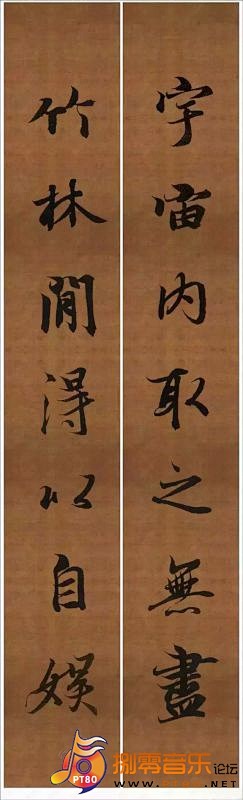 宇宙內取之無盡
竹林間得以自娱
PT80
捌零音乐论坛